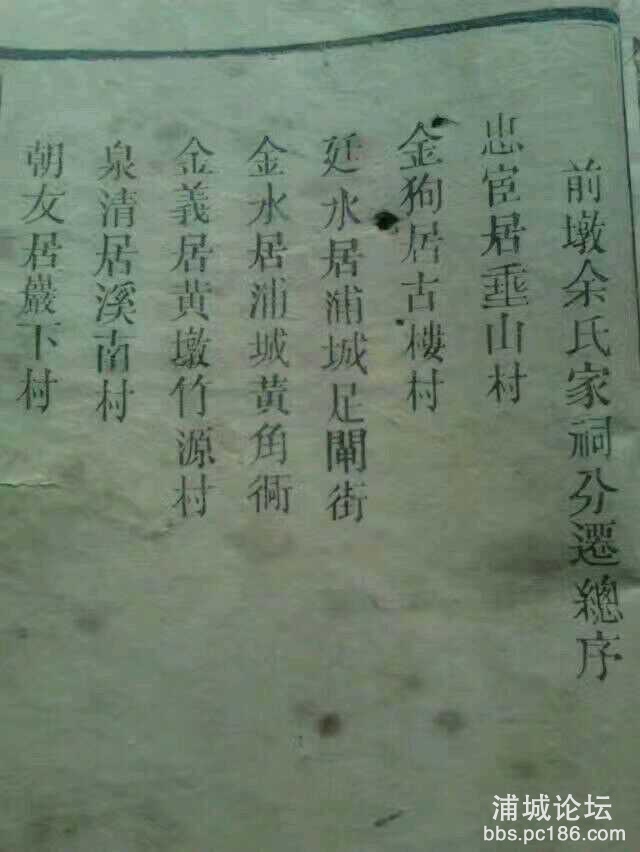 前墩余氏家祠分遷總序
忠宦居垂山村
金狗居古樓村
廷水居浦城足閘街
金水居浦城黄角衕
金義居黄墩竹源村
泉清居溪南村
朝友居巖下村
浦城论坛
bbs.pc186.com